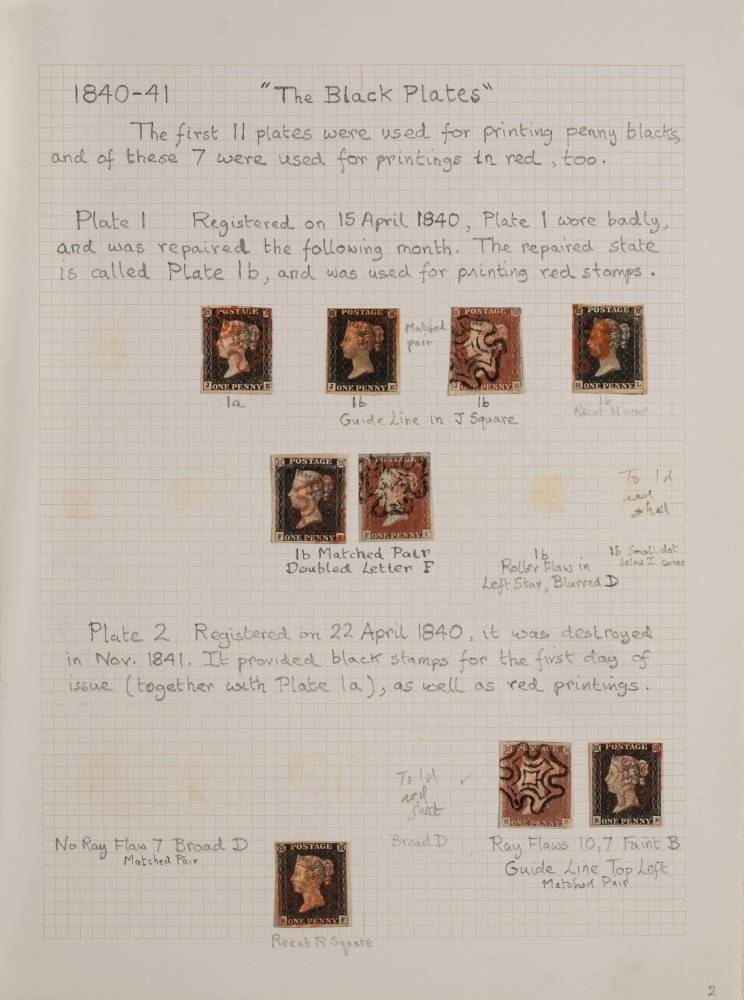 1840-41 "The Black Plates"
The first 11 plates were used for printing penny blacks,
and of these 7 were used for printings in red, too.
Plate 1 Registered on 15 April 1840, Plate 1 wore badly,
and was repaired the following month. The repaired state
is called Plate 1b, and was used for printing red stamps.
POSTAGE
J
ONE PENNY
1a
POSTAGE
J
ONE PENNY
1b
Matched
pair
POSTAGE
ONE PENNY
1b
Guide Line in J Square
POSTAGE
H ONE PENNY L
1b
Recut H
POSTAGE
F ONE PENNY I
POSTAGE
F ONE PENNY I
1b Matched Pair
Doubled Letter F
1b
Roller Flaw in
Left Star, Blurred D
To 1d
red
sheet
1b Small dot
below I corner
Plate 2 Registered on 22 April 1840, it was destroyed
in Nov. 1841. It provided black stamps for the first day of
issue (together with Plate 1a), as well as red printings.
No Ray Flaw 7 Broad D
Matched Pair
POSTAGE
ONE PENNY
Recut R Square
To 1d
red
sheet
✓
Broad D
ONE PENNY B
POSTAGE
ONE PENNY B
Ray Flaws 10,7 Faint B
Guide Line Top Left
Matched Pair
2